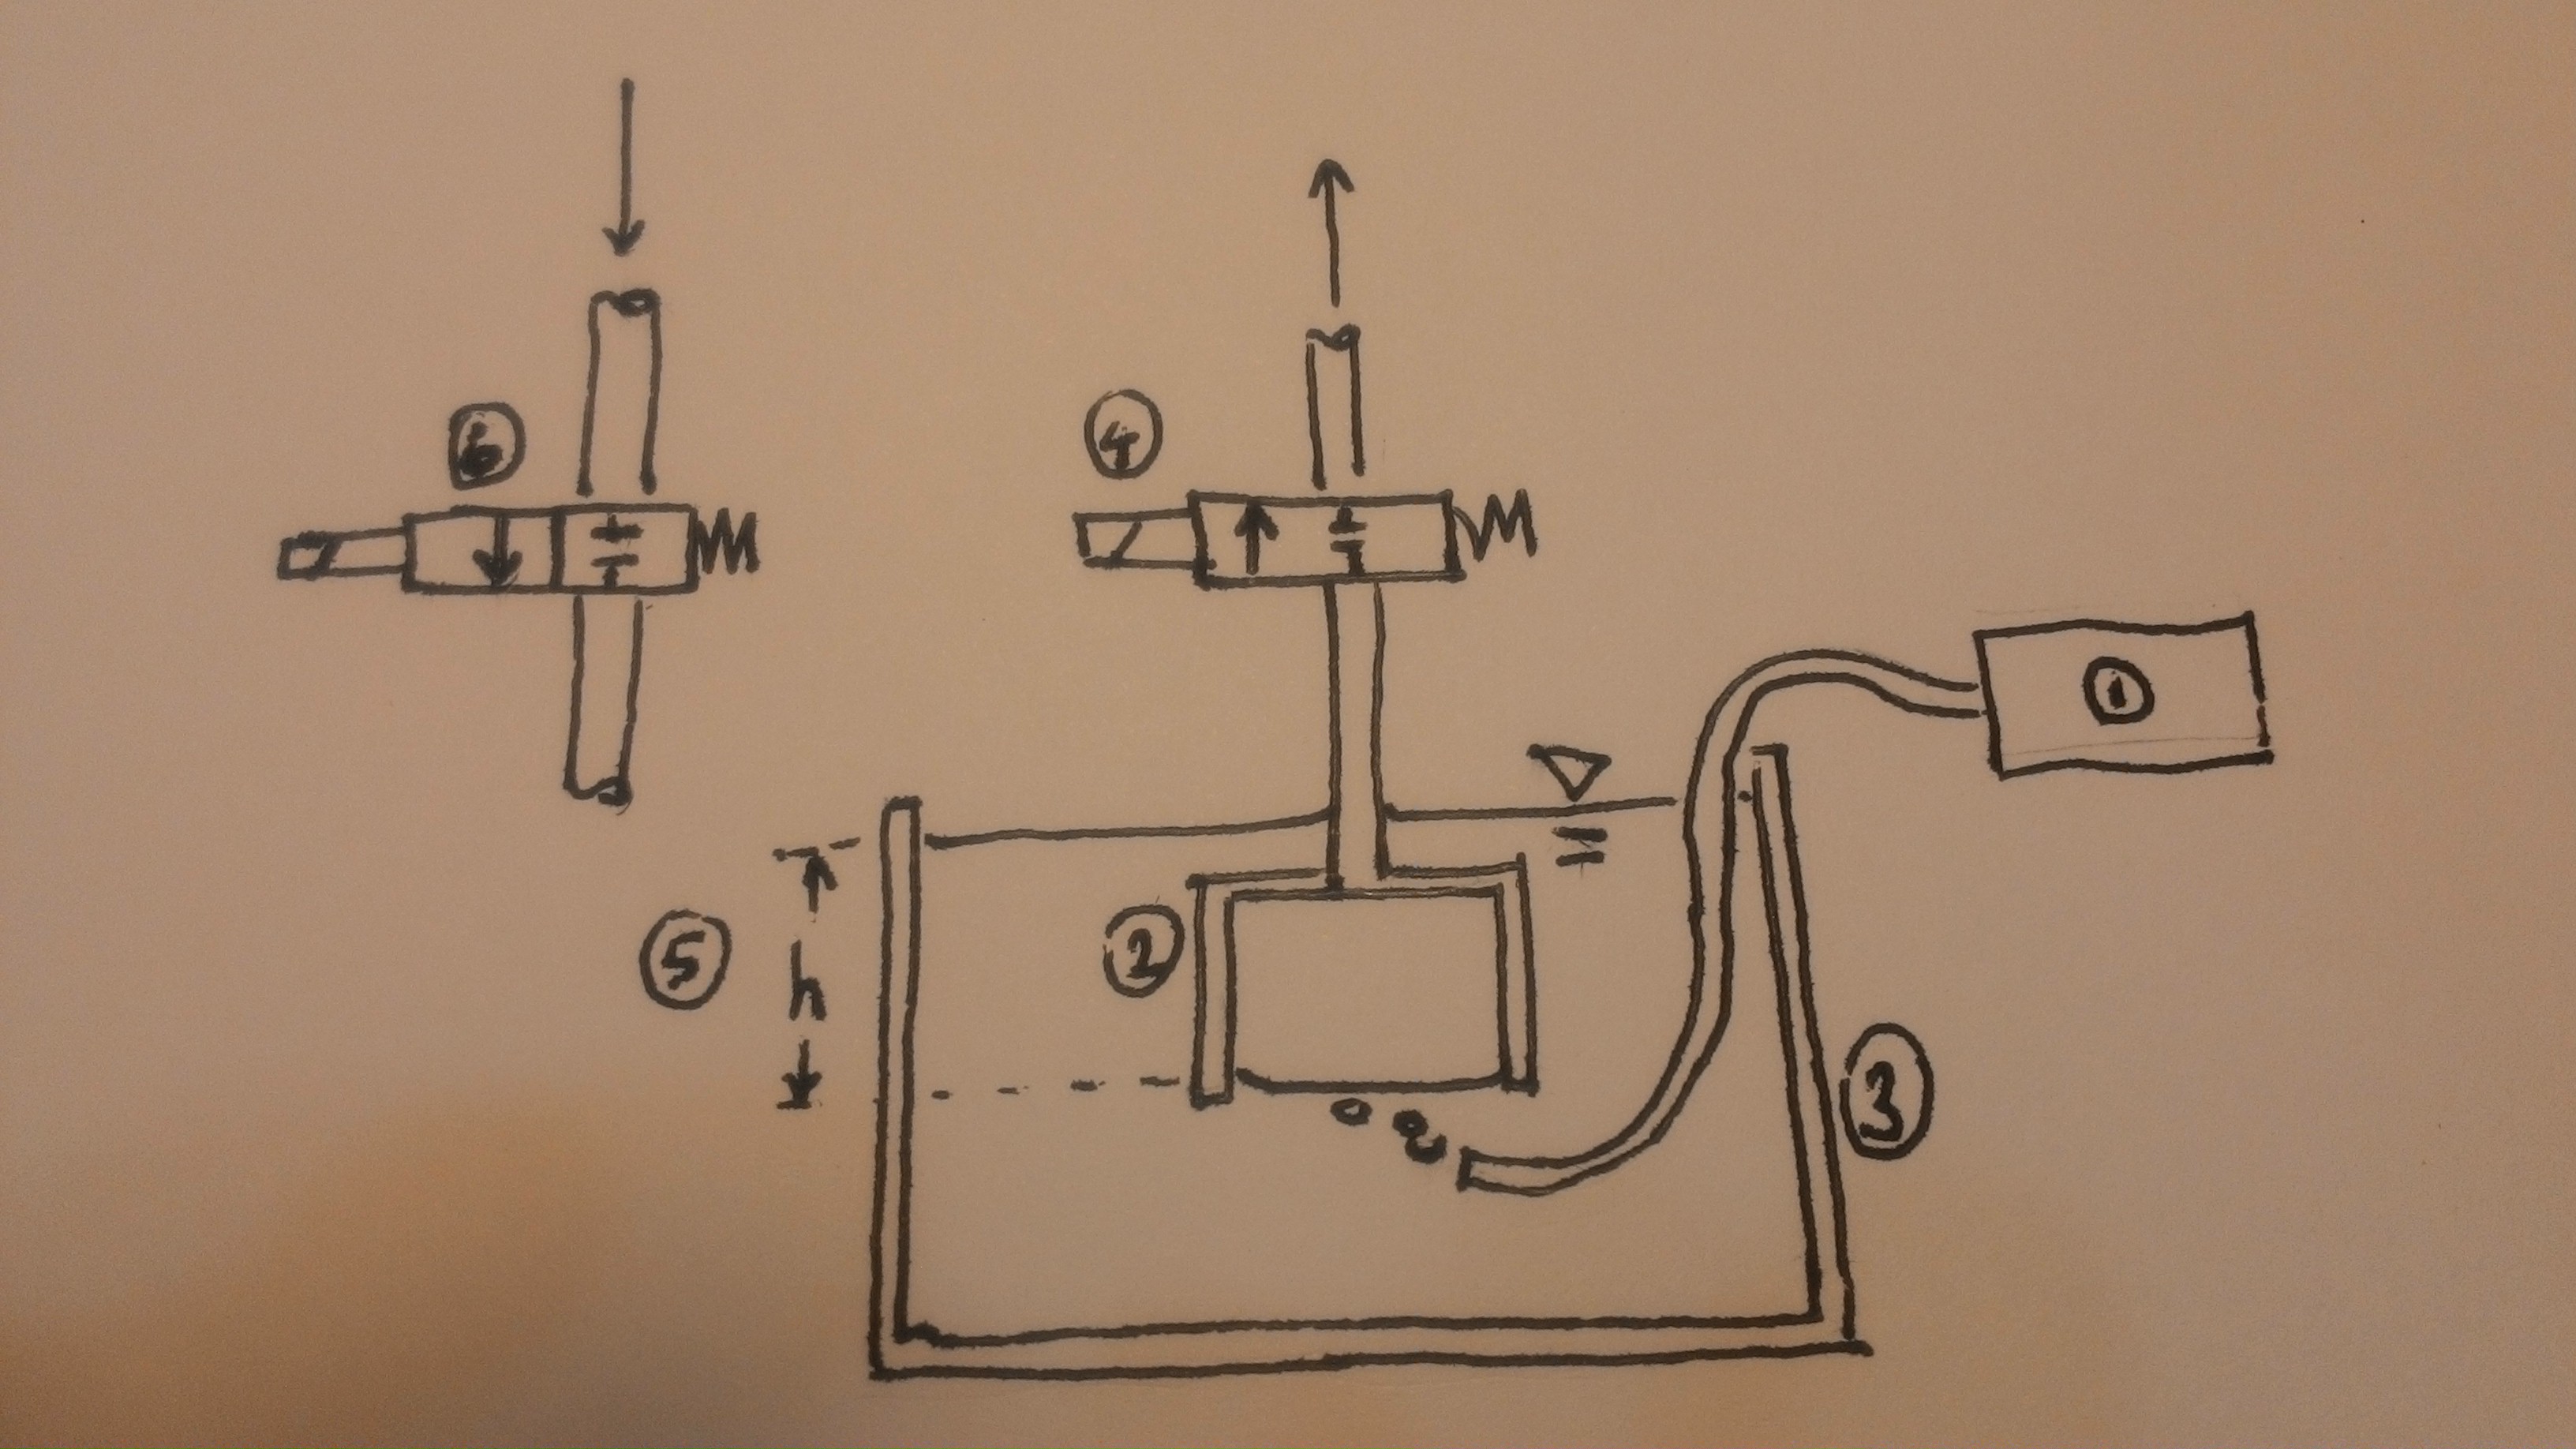 6
4
1
5
h
2
3